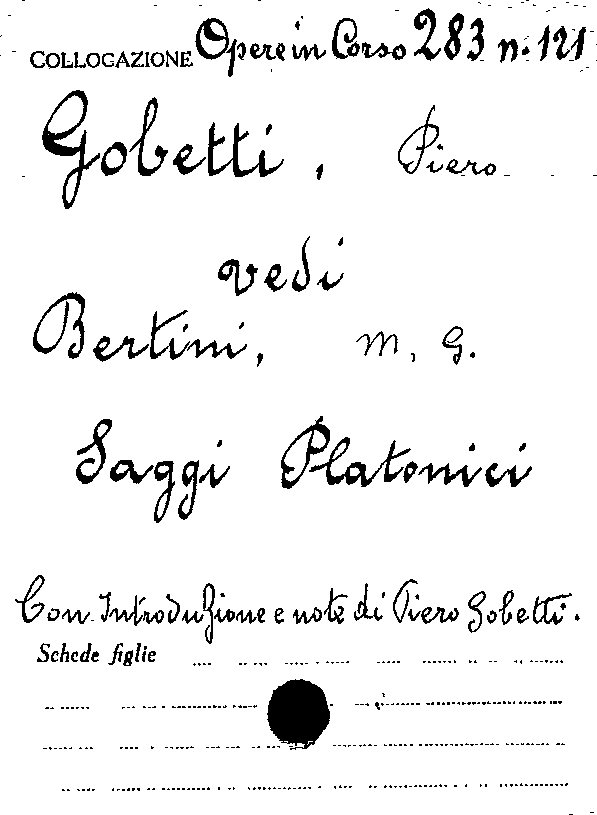 COLLOCAZIONE Opere in Corso 283 n. 121
Gobetti, Piero
vedi
Bertini, M, G.
Saggi Platonici
Con Introduzione e note di Piero Gobetti.
Schede figlie